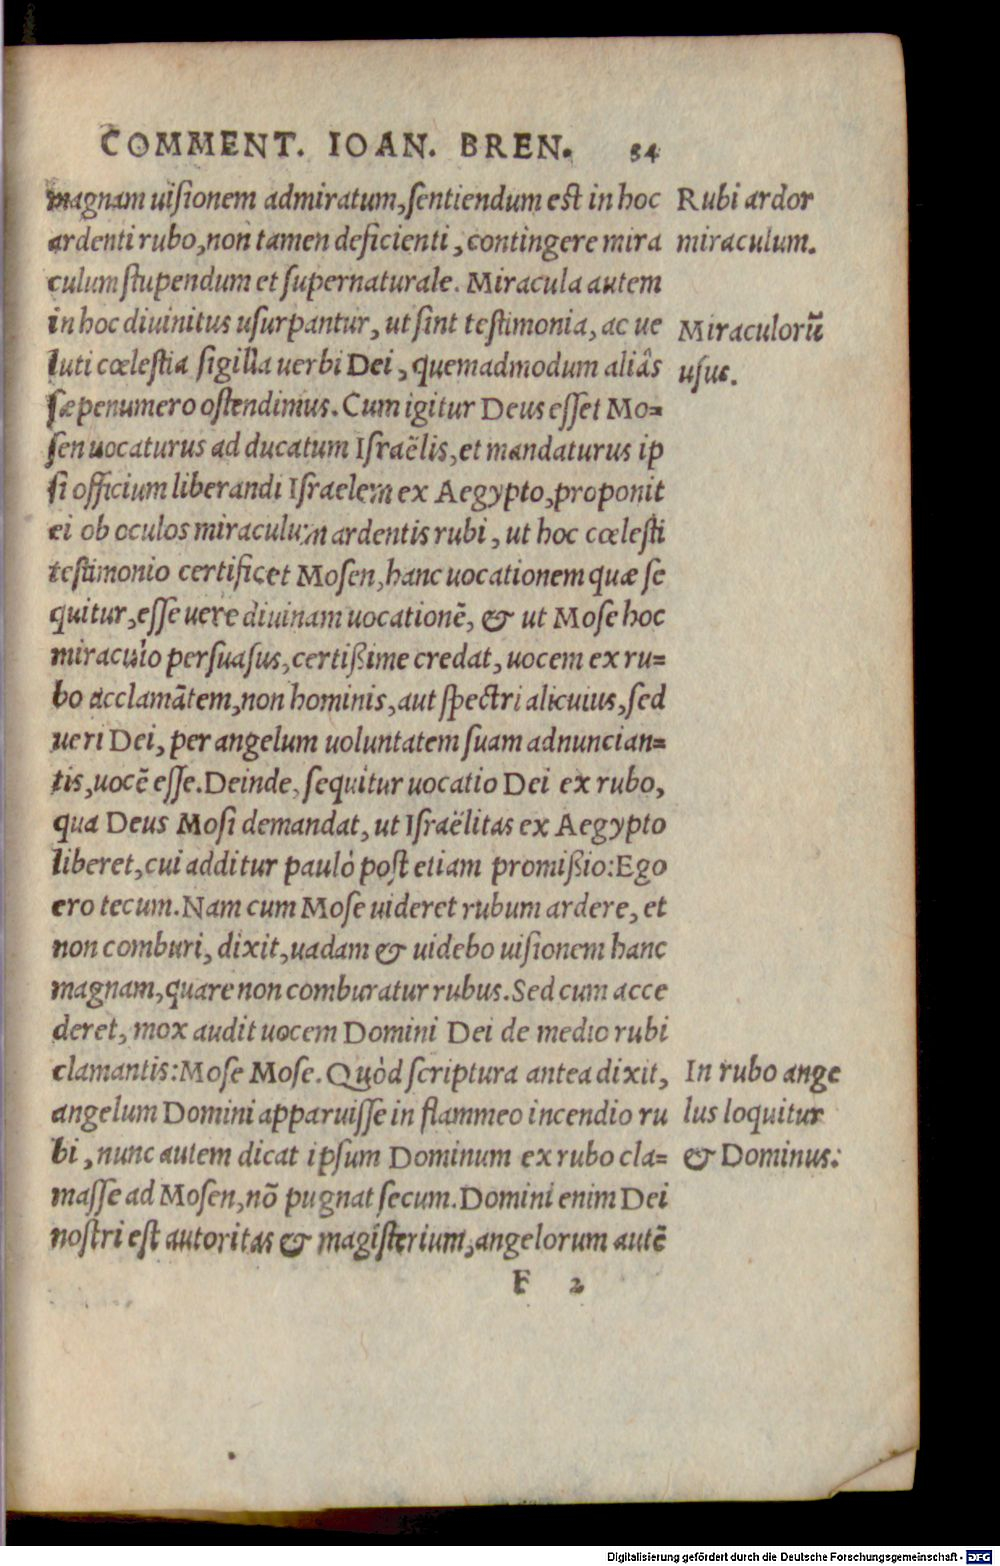 COMMENT. IOAN. BREN. 34
magnam uiſionem admiratum, ſentiendum est in hoc
ardenti rubo, non tamen deficienti, contingere mira
culum ſtupendum et ſupernaturale. Miracula autem
in hoc diuinitus uſurpantur, ut ſint teſtimonia, ac ue
luti cœleſtia ſigilla uerbi Dei, quemadmodum aliâs
ſæpenumero oſtendimus. Cum igitur Deus eſſet Mo=
ſen uocaturus ad ducatum Iſraëlis, et mandaturus ip
ſi officium liberandi Iſraelem ex Aegypto, proponit
ei ob oculos miraculum ardentis rubi, ut hoc cœleſti
teſtimonio certificet Moſen, hanc uocationem quæ ſe
quitur, eſſe uere diuinam uocationẽ, & ut Moſe hoc
miraculo perſuaſus, certißime credat, uocem ex ru=
bo acclamãtem, non hominis, aut ſpectri alicuius, ſed
ueri Dei, per angelum uoluntatem ſuam adnuncian=
tis, uocẽ eſſe. Deinde, ſequitur uocatio Dei ex rubo,
qua Deus Moſi demandat, ut Iſraëlitas ex Aegypto
liberet, cui additur paulò poſt etiam promißio: Ego
ero tecum. Nam cum Moſe uideret rubum ardere, et
non comburi, dixit, uadam & uidebo uiſionem hanc
magnam, quare non comburatur rubus. Sed cum acce
deret, mox audit uocem Domini Dei de medio rubi
clamantis: Moſe Moſe. Quòd ſcriptura antea dixit,
angelum Domini apparuiſſe in flammeo incendio ru
bi, nunc autem dicat ipſum Dominum ex rubo cla=
maſſe ad Moſen, nõ pugnat ſecum. Domini enim Dei
noſtri eſt autoritas & magiſterium, angelorum autẽ
F 2
Rubi ardor
miraculum.
Miraculorũ
uſus.
In rubo ange
lus loquitur
& Dominus.
Digitalisierung gefördert durch die Deutsche Forschungsgemeinschaft - DFG